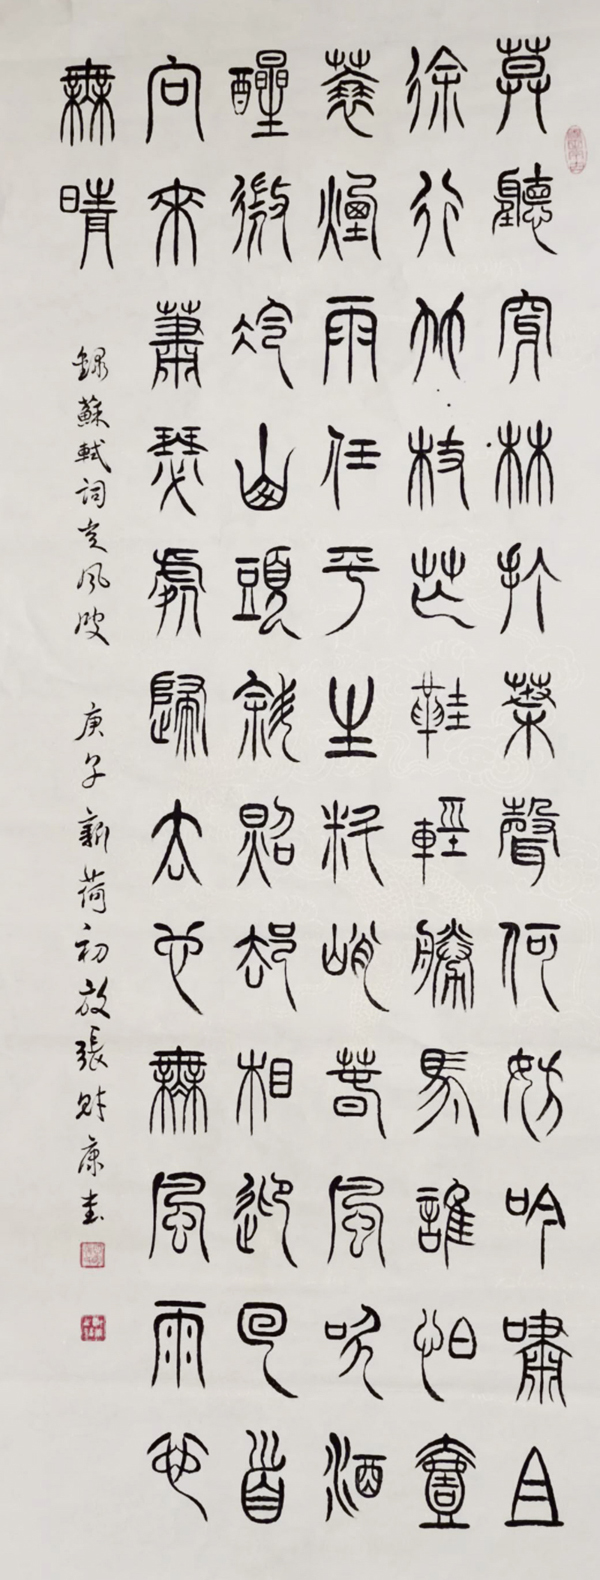 莫聽穿林打葉聲何妨吟嘯且
徐行竹杖芒鞋輕勝馬誰怕壹
蓑煙雨任平生料峭春風吹酒
醒微冷山頭斜照卻相迎回首
向來蕭瑟處歸去也無風雨也
無晴
錄蘇軾詞定風波 庚子新荷初放張財康書